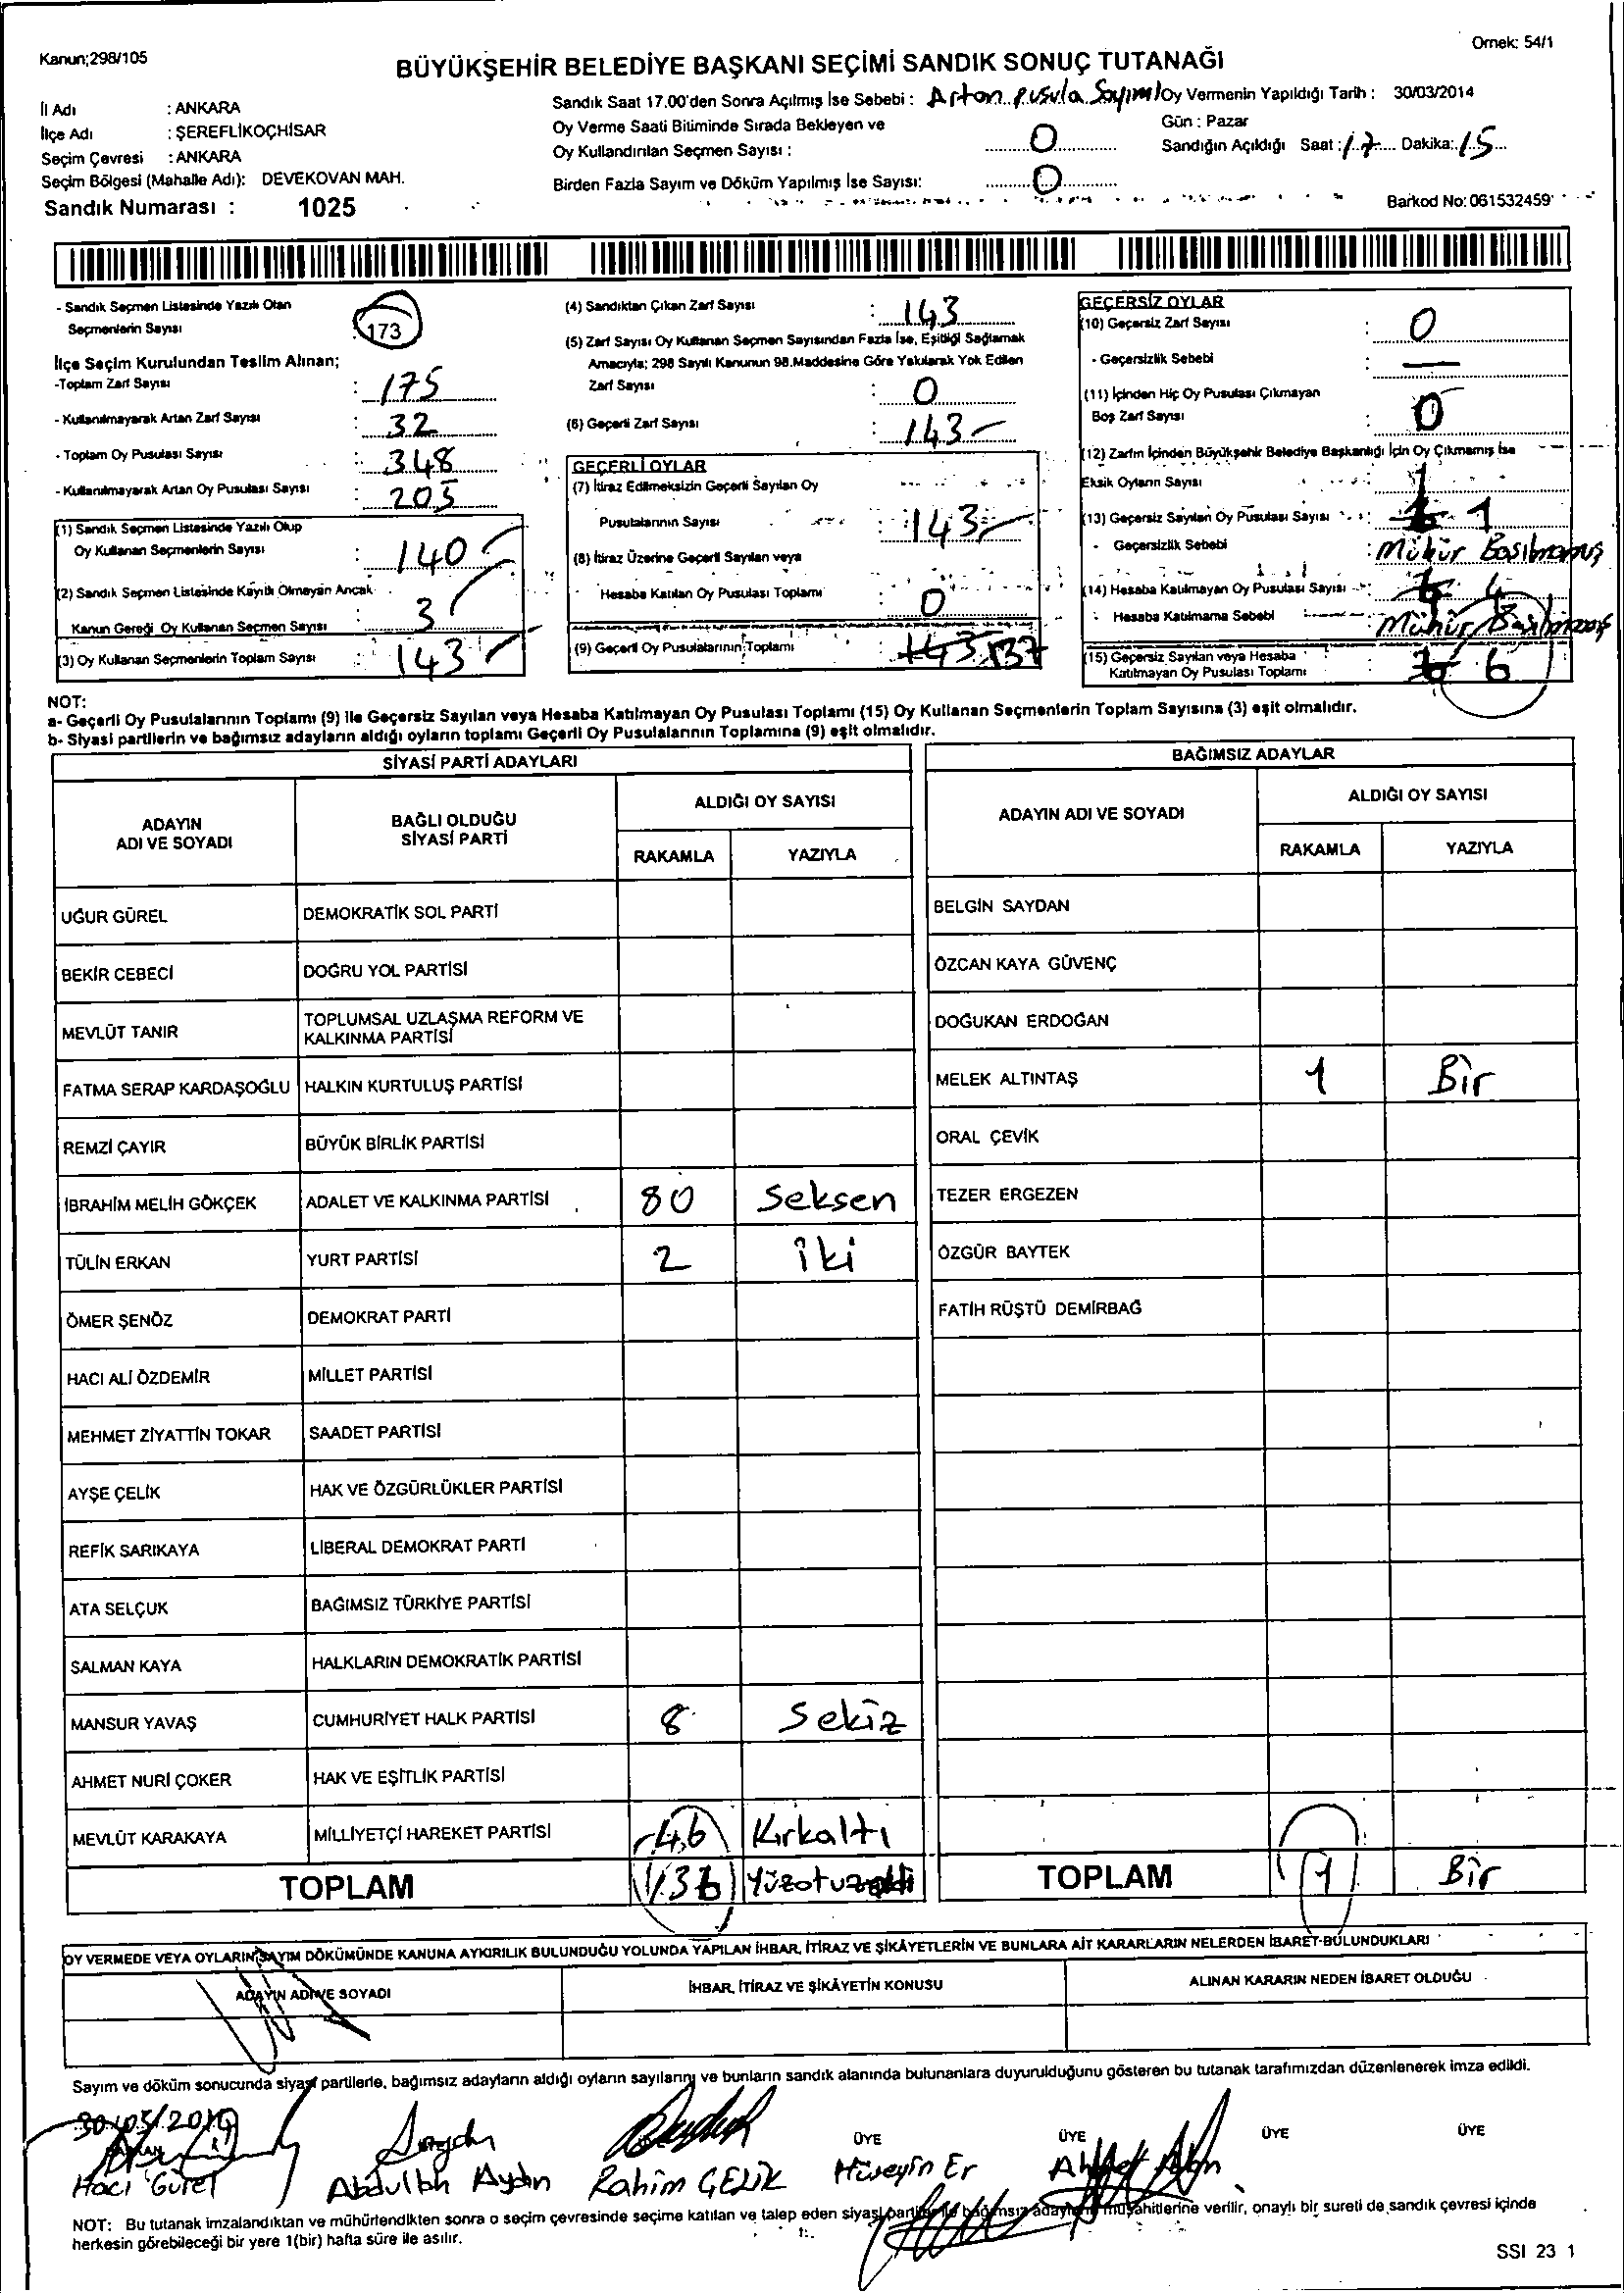 Kanun;298/105
Örnek: 54/1
BÜYÜKŞEHİR BELEDİYE BAŞKANI SEÇİMİ SANDIK SONUÇ TUTANAĞI
İl Adı : ANKARA
İlçe Adı : ŞEREFLİKOÇHİSAR
Seçim Çevresi : ANKARA
Seçim Bölgesi (Mahalle Adı): DEVEKOVAN MAH.
Sandık Numarası : 1025
Sandık Saat 17.00'den Sonra Açılmış İse Sebebi : Artan pusula Sayımı
Oy Verme Saati Bitiminde Sırada Bekleyen ve
Oy Kullandırılan Seçmen Sayısı : 0
Birden Fazla Sayım ve Döküm Yapılmış İse Sayısı: 0
Oy Vermenin Yapıldığı Tarih : 30/03/2014
Gün : Pazar
Sandığın Açıldığı Saat : 17 Dakika: 15
Barkod No: 061532459
- Sandık Seçmen Listesinde Yazılı Olan
Seçmenlerin Sayısı : 173
İlçe Seçim Kurulundan Teslim Alınan;
-Toplam Zarf Sayısı : 175
- Kullanılmayarak Artan Zarf Sayısı : 32
- Toplam Oy Pusulası Sayısı : 348
- Kullanılmayarak Artan Oy Pusulası Sayısı : 205
(1) Sandık Seçmen Listesinde Yazılı Olup
Oy Kullanan Seçmenlerin Sayısı : 140
(2) Sandık Seçmen Listesinde Kayıtlı Olmayan Ancak
Kanun Gereği Oy Kullanan Seçmen Sayısı : 3
(3) Oy Kullanan Seçmenlerin Toplam Sayısı : 143
(4) Sandıktan Çıkan Zarf Sayısı : 143
(5) Zarf Sayısı Oy Kullanan Seçmen Sayısından Fazla İse, Eşitliği Sağlamak
Amacıyla; 298 Sayılı Kanunun 98.Maddesine Göre Yakılarak Yok Edilen
Zarf Sayısı : 0
(6) Geçerli Zarf Sayısı : 143
GEÇERLİ OYLAR
(7) İtiraz Edilmeksizin Geçerli Sayılan Oy
Pusulalarının Sayısı : 143
(8) İtiraz Üzerine Geçerli Sayılan veya
Hesaba Katılan Oy Pusulası Toplamı : 0
(9) Geçerli Oy Pusulalarının Toplamı : 143 137
GEÇERSİZ OYLAR
(10) Geçersiz Zarf Sayısı : 0
- Geçersizlik Sebebi : —
(11) İçinden Hiç Oy Pusulası Çıkmayan
Boş Zarf Sayısı : 0
(12) Zarfın İçinden Büyükşehir Belediye Başkanlığı İçin Oy Çıkmamış İse
Eksik Oyların Sayısı : 1
(13) Geçersiz Sayılan Oy Pusulası Sayısı : 1
- Geçersizlik Sebebi : Mühür Basılmamış
(14) Hesaba Katılmayan Oy Pusulası Sayısı : 4
- Hesaba Katılmama Sebebi : Mühür Basılmamış
(15) Geçersiz Sayılan veya Hesaba
Katılmayan Oy Pusulası Toplamı : 6
NOT:
a- Geçerli Oy Pusulalarının Toplamı (9) ile Geçersiz Sayılan veya Hesaba Katılmayan Oy Pusulası Toplamı (15) Oy Kullanan Seçmenlerin Toplam Sayısına (3) eşit olmalıdır.
b- Siyasi partilerin ve bağımsız adayların aldığı oyların toplamı Geçerli Oy Pusulalarının Toplamına (9) eşit olmalıdır.
SİYASİ PARTİ ADAYLARI
ADAYIN ADI VE SOYADI
BAĞLI OLDUĞU SİYASİ PARTİ
ALDIĞI OY SAYISI
RAKAMLA YAZIYLA
UĞUR GÜREL DEMOKRATİK SOL PARTİ
BEKİR CEBECİ DOĞRU YOL PARTİSİ
MEVLÜT TANIR TOPLUMSAL UZLAŞMA REFORM VE KALKINMA PARTİSİ
FATMA SERAP KARDAŞOĞLU HALKIN KURTULUŞ PARTİSİ
REMZİ ÇAYIR BÜYÜK BİRLİK PARTİSİ
İBRAHİM MELİH GÖKÇEK ADALET VE KALKINMA PARTİSİ 80 Seksen
TÜLİN ERKAN YURT PARTİSİ 2 iki
ÖMER ŞENÖZ DEMOKRAT PARTİ
HACI ALİ ÖZDEMİR MİLLET PARTİSİ
MEHMET ZİYATTİN TOKAR SAADET PARTİSİ
AYŞE ÇELİK HAK VE ÖZGÜRLÜKLER PARTİSİ
REFİK SARIKAYA LİBERAL DEMOKRAT PARTİ
ATA SELÇUK BAĞIMSIZ TÜRKİYE PARTİSİ
SALMAN KAYA HALKLARIN DEMOKRATİK PARTİSİ
MANSUR YAVAŞ CUMHURİYET HALK PARTİSİ 8 Sekiz
AHMET NURİ ÇOKER HAK VE EŞİTLİK PARTİSİ
MEVLÜT KARAKAYA MİLLİYETÇİ HAREKET PARTİSİ 46 Kırkaltı
TOPLAM 136 Yüzotuzaltı
BAĞIMSIZ ADAYLAR
ADAYIN ADI VE SOYADI
ALDIĞI OY SAYISI
RAKAMLA YAZIYLA
BELGİN SAYDAN
ÖZCAN KAYA GÜVENÇ
DOĞUKAN ERDOĞAN
MELEK ALTINTAŞ 1 Bir
ORAL ÇEVİK
TEZER ERGEZEN
ÖZGÜR BAYTEK
FATİH RÜŞTÜ DEMİRBAĞ
TOPLAM 1 Bir
OY VERMEDE VEYA OYLARIN SAYIM DÖKÜMÜNDE KANUNA AYKIRILIK BULUNDUĞU YOLUNDA YAPILAN İHBAR, İTİRAZ VE ŞİKÂYETLERİN VE BUNLARA AİT KARARLARIN NELERDEN İBARET BULUNDUKLARI
ADAYIN ADI VE SOYADI
İHBAR, İTİRAZ VE ŞİKÂYETİN KONUSU
ALINAN KARARIN NEDEN İBARET OLDUĞU
Sayım ve döküm sonucunda siyasi partilerle, bağımsız adayların aldığı oyların sayılarını ve bunların sandık alanında bulunanlara duyurulduğunu gösteren bu tutanak tarafımızdan düzenlenerek imza edildi.
ÜYE ÜYE ÜYE ÜYE
Hacı Gürel Abdullah Aydın Rahim ÇELİK Hüseyin Er
NOT: Bu tutanak imzalandıktan ve mühürlendikten sonra o seçim çevresinde seçime katılan ve talep eden siyasi partiler ile bağımsız adayların müşahitlerine verilir, onaylı bir sureti de sandık çevresi içinde
herkesin görebileceği bir yere 1(bir) hafta süre ile asılır.
SSI 23 1